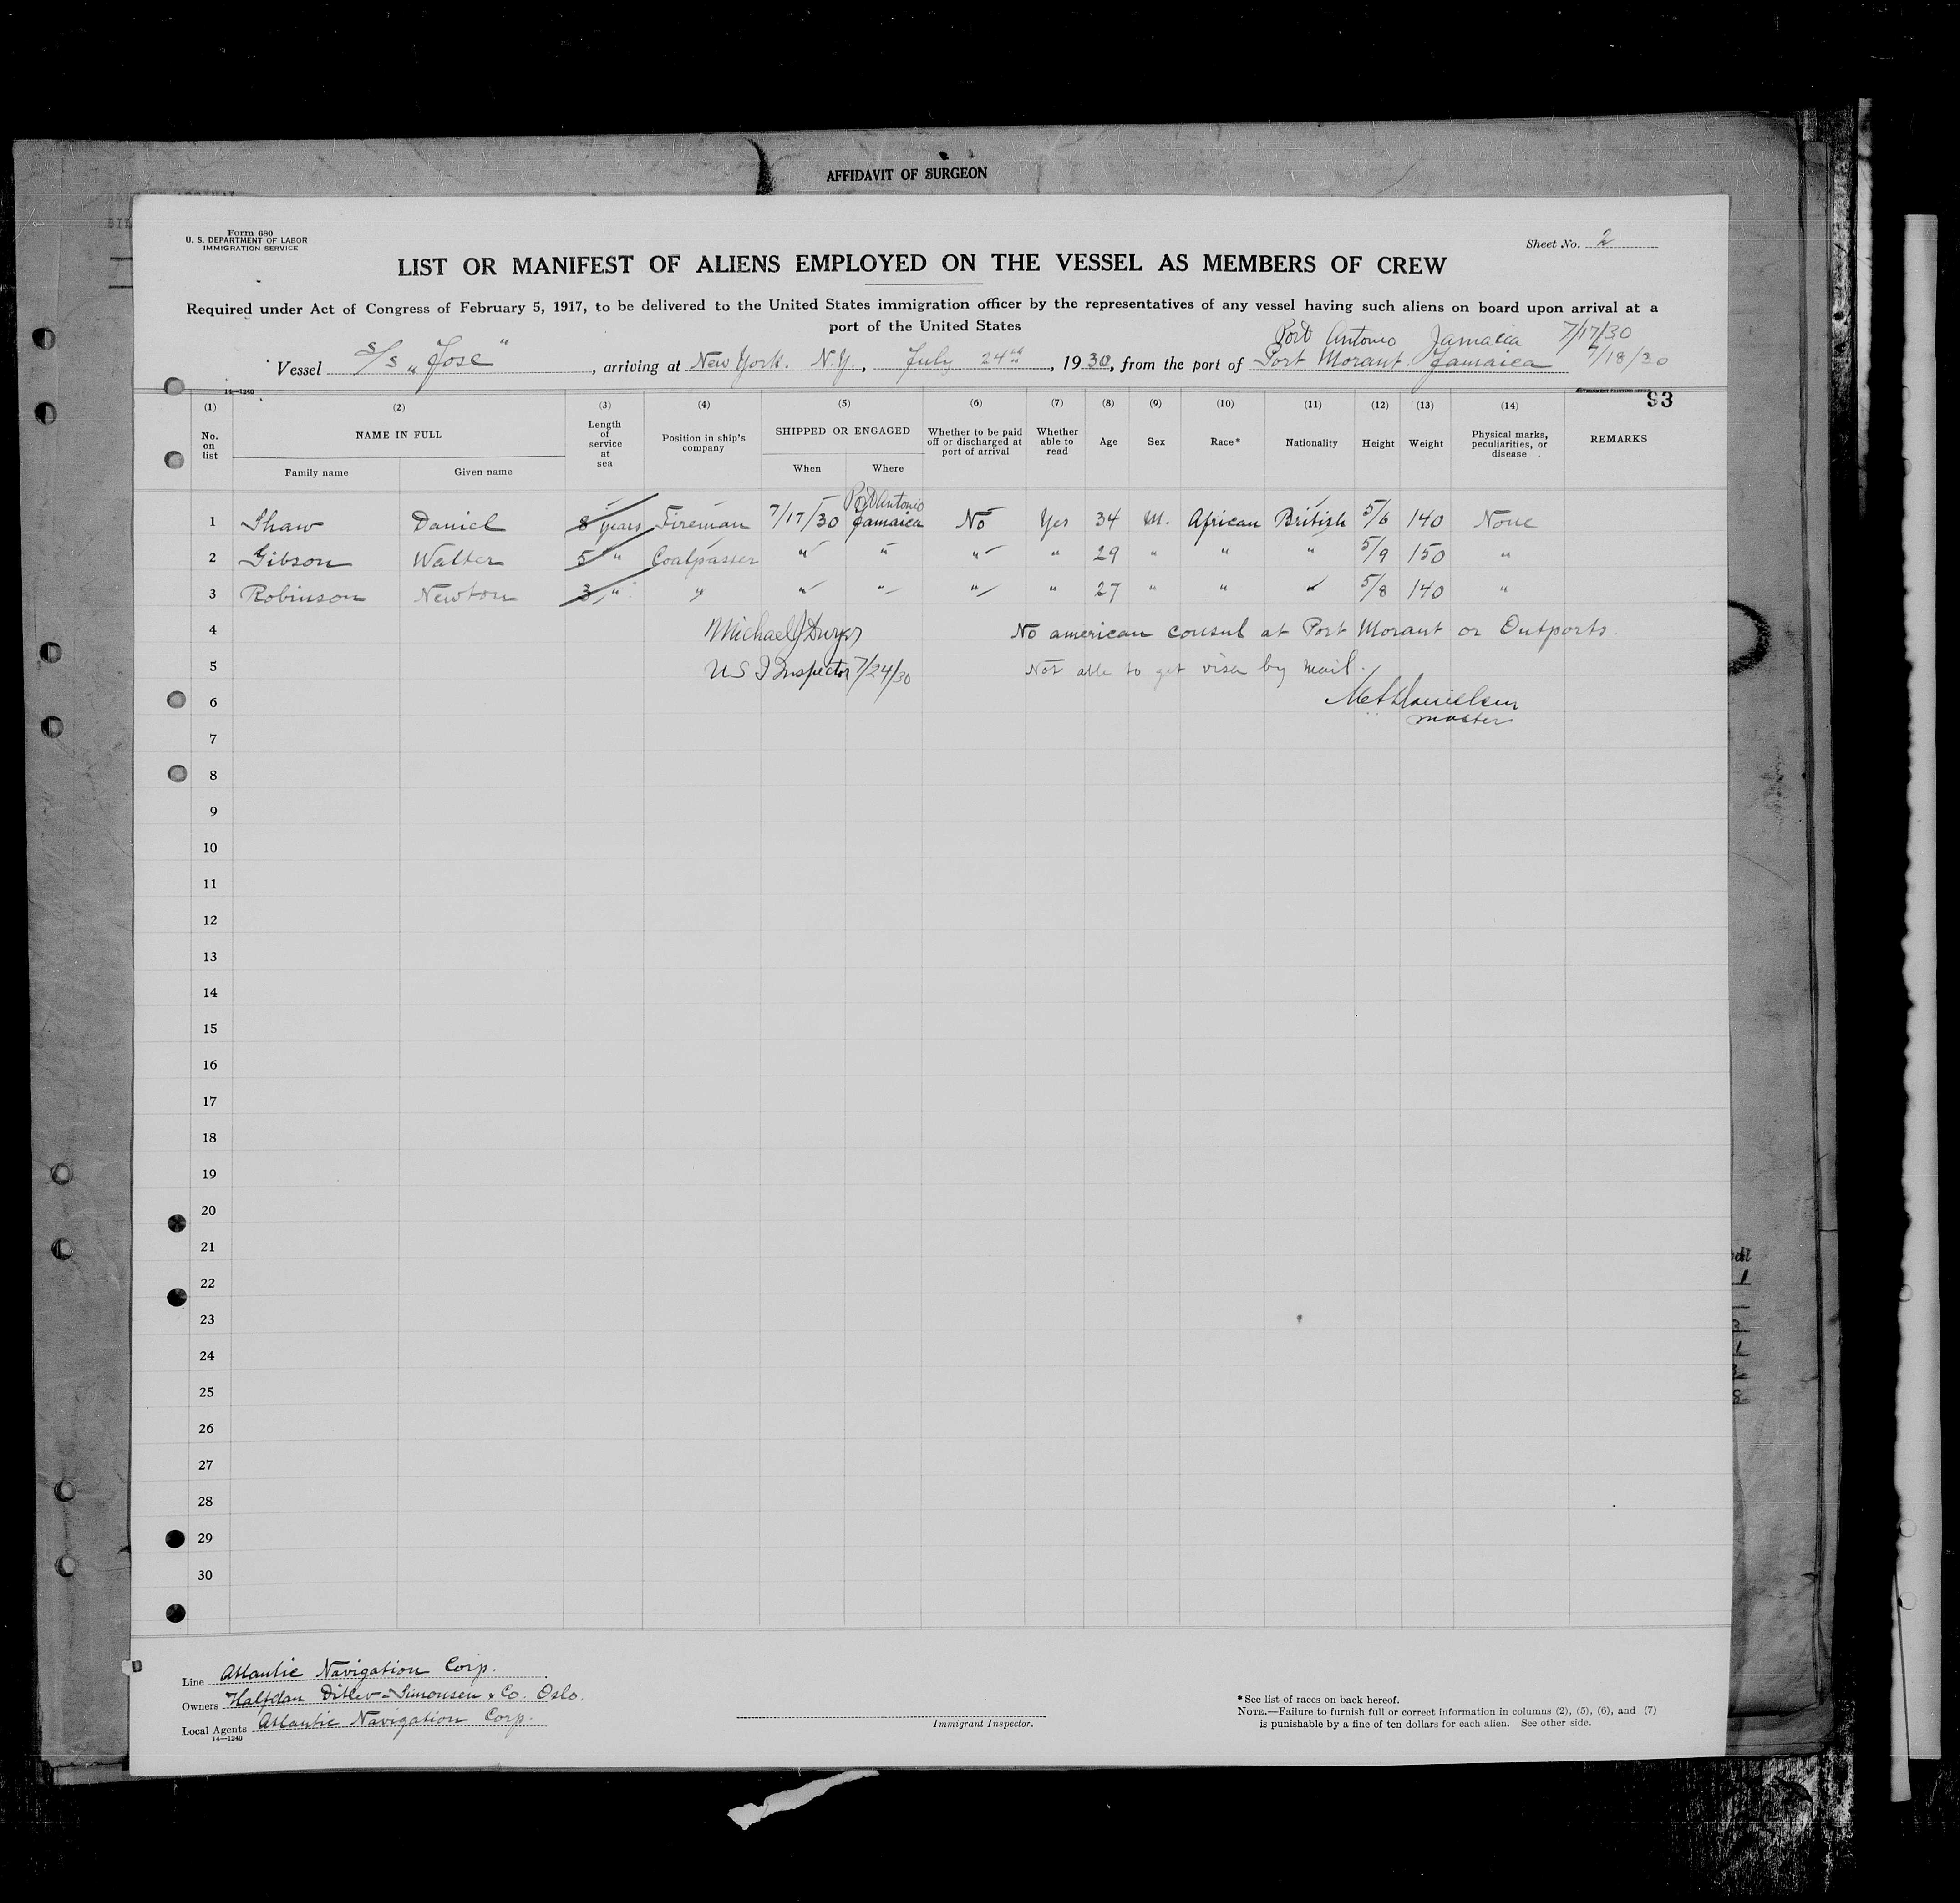 AFFIDAVIT OF SURGEON
Form 680
U. S. DEPARTMENT OF LABOR
IMMIGRATION SERVICE
Sheet No. 2
LIST OR MANIFEST OF ALIENS EMPLOYED ON THE VESSEL AS MEMBERS OF CREW
Required under Act of Congress of February 5, 1917, to be delivered to the United States immigration officer by the representatives of any vessel having such aliens on board upon arrival at a
port of the United States
Port Antonio Jamaica 7/17/30
Vessel S/S "Jose", arriving at New York. N.Y., July 24th, 1930, from the port of Port Morant Jamaica 7/18/30
14—1240
93
(1) (2) (3) (4) (5) (6) (7) (8) (9) (10) (11) (12) (13) (14)
No. on list NAME IN FULL Length of service at sea Position in ship's company SHIPPED OR ENGAGED Whether to be paid off or discharged at port of arrival Whether able to read Age Sex Race* Nationality Height Weight Physical marks, peculiarities, or disease REMARKS
Family name Given name When Where
1 Shaw Daniel 8 years Fireman 7/17/30 Port Antonio Jamaica No Yes 34 M. African British 5/6 140 None
2 Gibson Walter 5 " Coalpasser " " " " 29 " " " 5/9 150 "
3 Robinson Newton 3 " " " " " " 27 " " " 5/8 140 "
4 Michael J No american consul at Port Morant or Outports.
5 U S I Inspector 7/24/30 Not able to get visa by mail.
6
master
7
8
9
10
11
12
13
14
15
16
17
18
19
20
21
22
23
24
25
26
27
28
29
30
Line Atlantic Navigation Corp.
Owners Halfdan Ditlev-Simonsen & Co. Oslo.
Local Agents Atlantic Navigation Corp.
14—1240
Immigrant Inspector.
*See list of races on back hereof.
NOTE.—Failure to furnish full or correct information in columns (2), (5), (6), and (7)
is punishable by a fine of ten dollars for each alien. See other side.